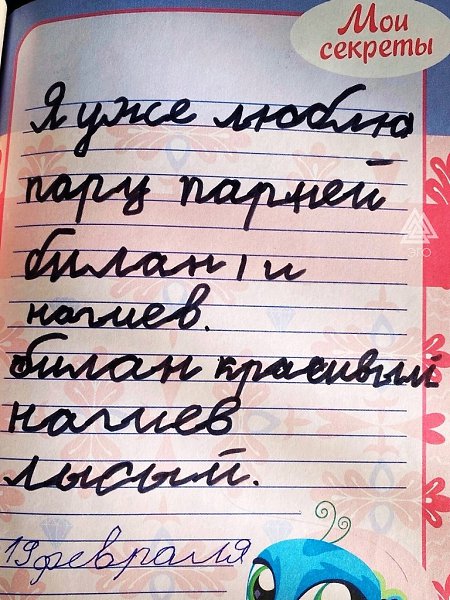 Мои
секреты
Я уже люблю
пару парней
билан, и
нагиев.
билан красивый
нагиев
лысый.
19 февраля
эго